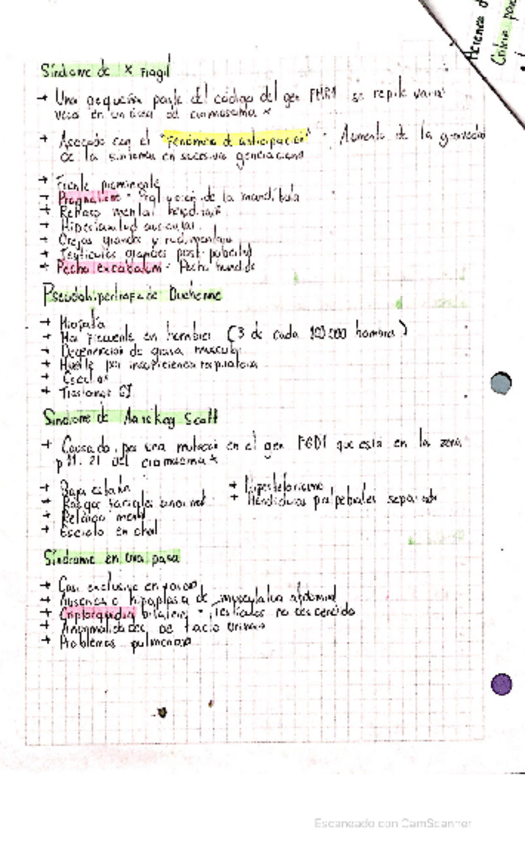 Herencia d
Criterio para
Síndrome de X Fragil
→ Una pequeña parte del código del gen FMR1 se repite varias
veces en un área del cromosoma X
→ Asociado con el "Fenómeno de anticipación" - Aumento de la gravedad
de la sintoma en sucesivas generaciones
→ Frente prominente
→ Prognatismo - de la mandíbula
→ Retraso mental
→ Hiperactividad
→ Orejas grandes y
→ Testículos grandes post-pubertad
→ Pecho excabatum - Pecho hundido
Pseudohipertrofia de Duchenne
→ Miopatía
→ Mas frecuente en hombres (3 de cada 100 000 hombres)
→ Degeneración de grasa muscular
→ Muerte por insuficiencia respiratoria
→ Escolios
→ Trastornos GI
Sindrome de Aarskog Scott
→ Causado por una mutación en el gen FGD1 que está en la zona
p11.21 del cromosoma X
→ Baja estatura
→ Rasgos faciales anormal
→ Retardo mental
→ Escroto en chal
→ Hipertelorismo
→ Hendiduras palpebrales separada
Síndrome en una pasa
→ Casi exclusivo en varon
→ Ausencia o hipoplasia de musculatura abdominal
→ Criptorquidia bilateral - Testículos no descendido
→ Anormalidades de tracto urinario
→ Problemas pulmonares
Escaneado con CamScanner